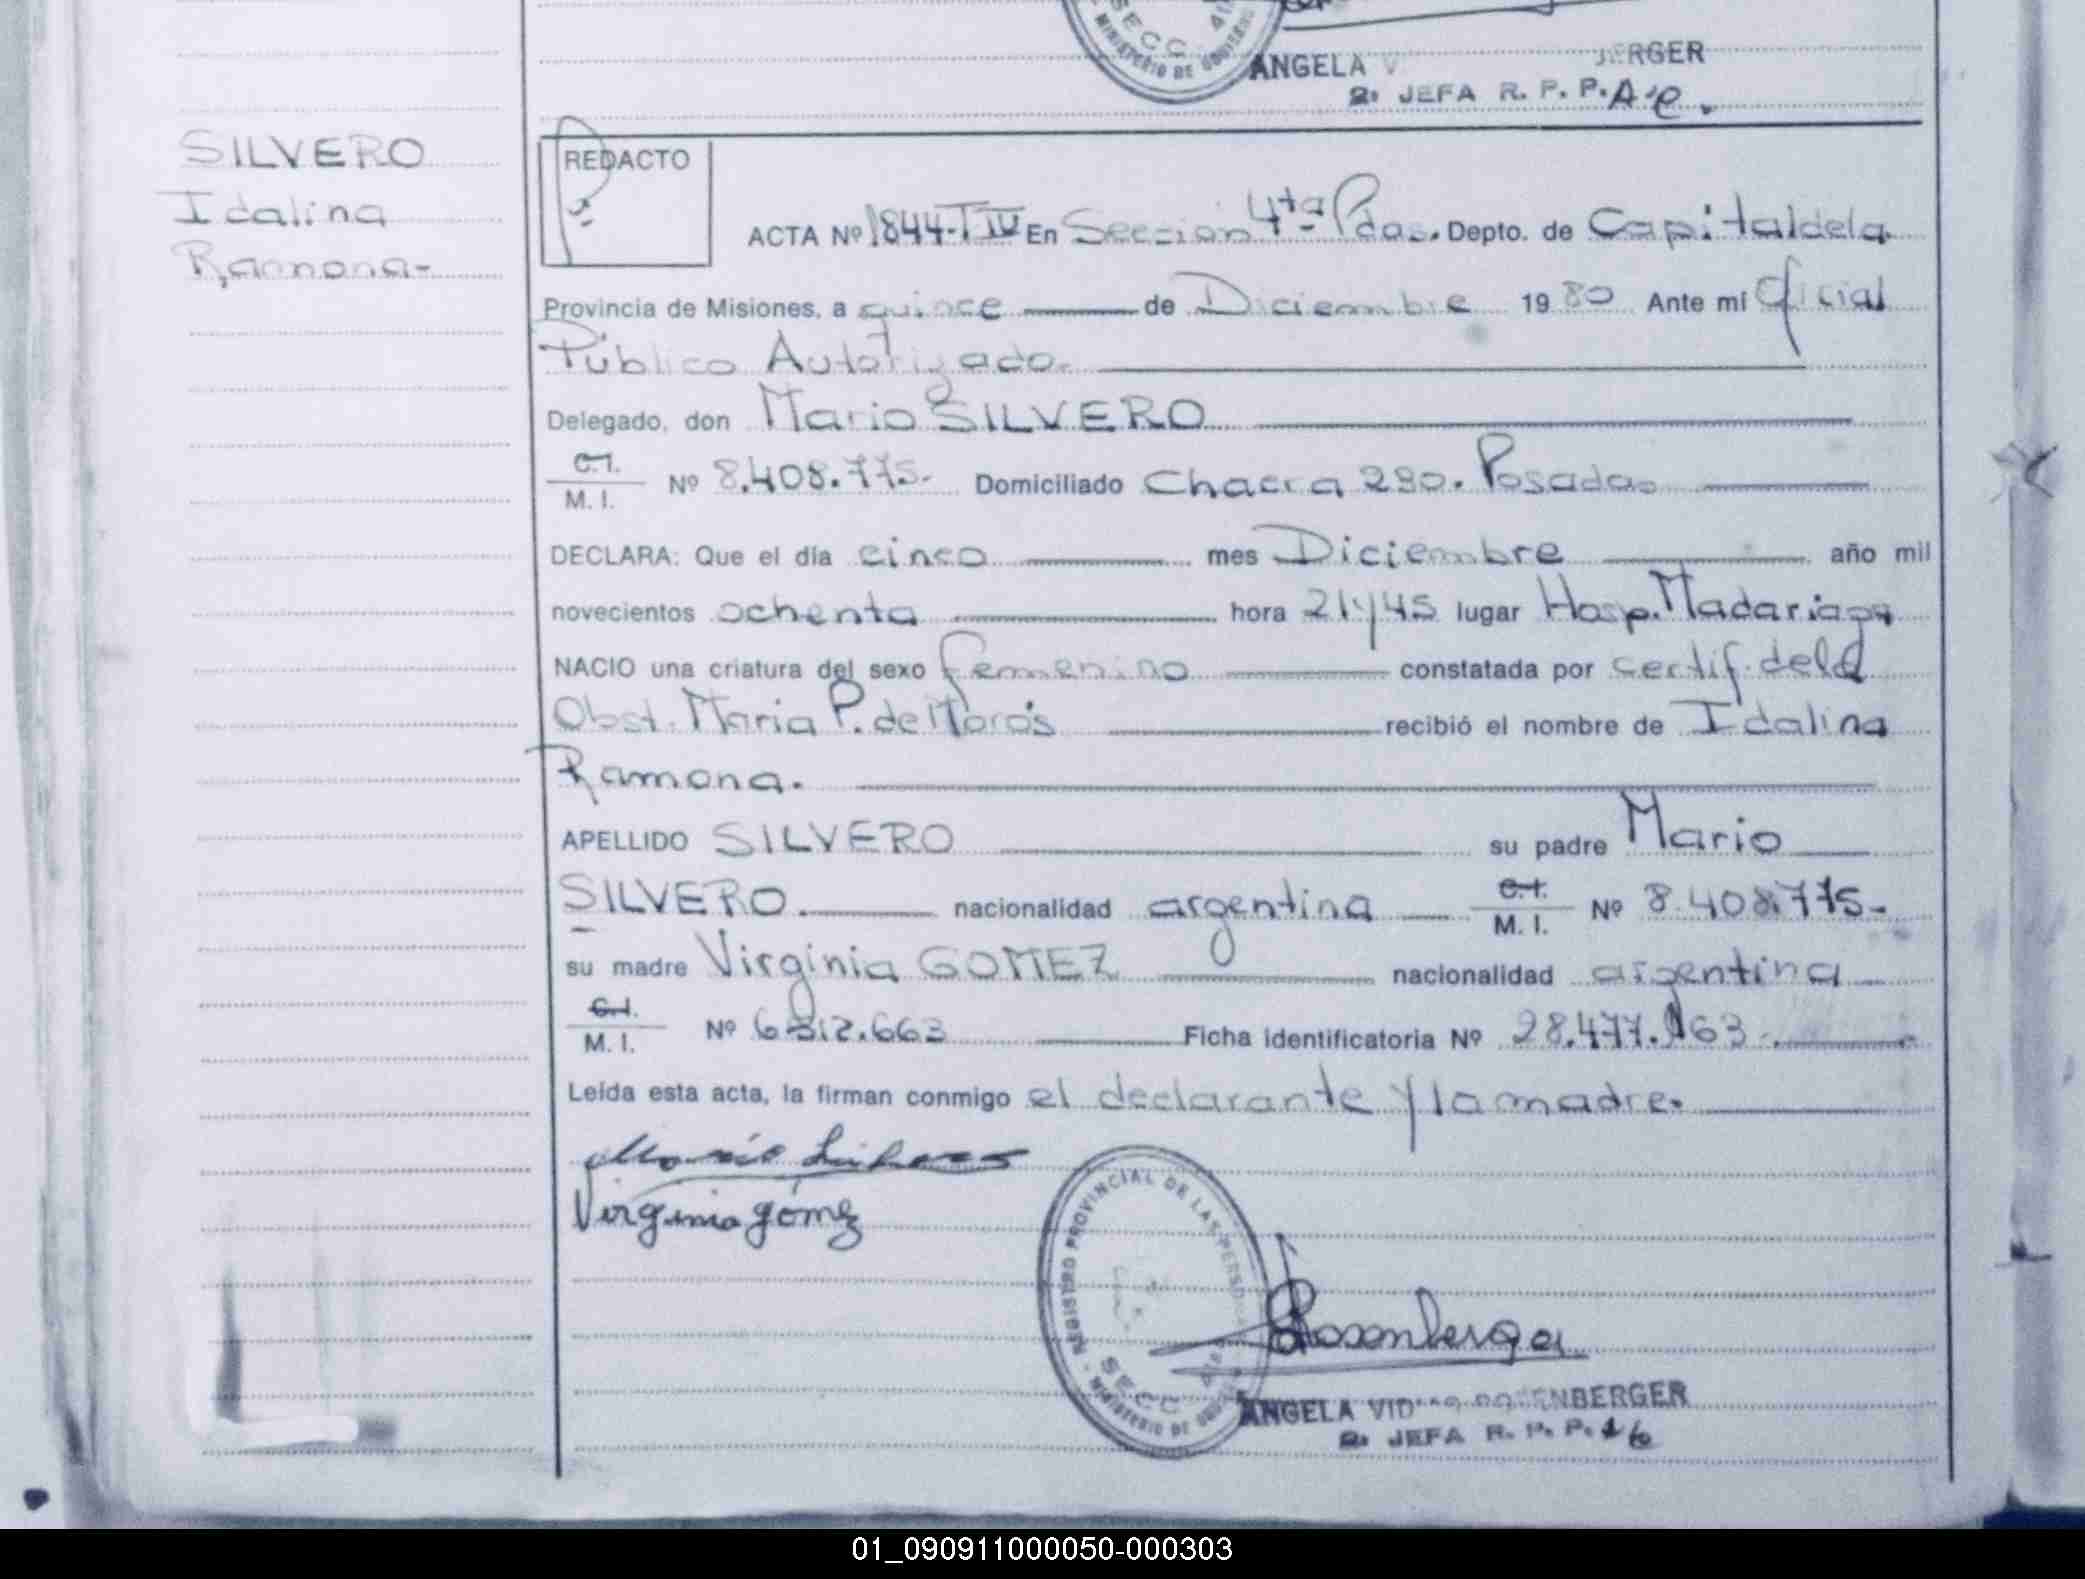 SECC 4ta
MINISTERIO DE GOBIERNO
ANGELA V BERGER
2a JEFA R. P. P.
SILVERO
Idalina
Ramona-
REDACTO
ACTA Nº 1844-TIV En Sección 4ta Pdas. Depto. de Capital de la
Provincia de Misiones, a quince de Diciembre 1980 Ante mi Oficial
Público Autorizado.
Delegado, don Mario SILVERO
C.I.
M. I. Nº 8.408.775.- Domiciliado Chacra 290. Posadas
DECLARA: Que el día cinco mes Diciembre año mil
novecientos ochenta hora 21y45 lugar Hosp. Madariaga
NACIO una criatura del sexo femenino constatada por certif. de la
Obst. Maria P. de Moros recibió el nombre de Idalina
Ramona.
APELLIDO SILVERO su padre Mario
SILVERO. nacionalidad argentina C.I.
M. I. Nº 8.408.775.-
su madre Virginia GOMEZ nacionalidad argentina
C.I.
M. I. Nº 6.312.663 Ficha identificatoria Nº 28.477.163.
Leída esta acta, la firman conmigo el declarante y la madre.
Virginia gómez
REGISTRO PROVINCIAL DE LAS PERSONAS
SECC 4ta
MINISTERIO DE GOBIERNO
Rosenberger
ANGELA VID ROSENBERGER
2a JEFA R. P. P.
01_090911000050-000303